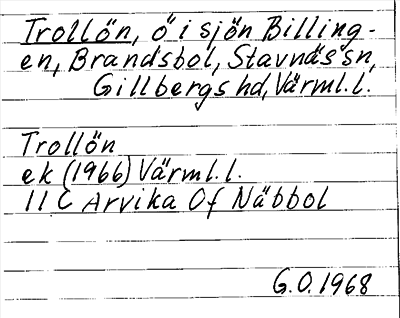 Trollön, ö i sjön Billing-
en, Brandsbol, Stavnäs sn,
Gillbergs hd, Värml. l.
Trollön
ek (1966) Värml. l.
11 C Arvika Of Näbbol
G.O. 1968